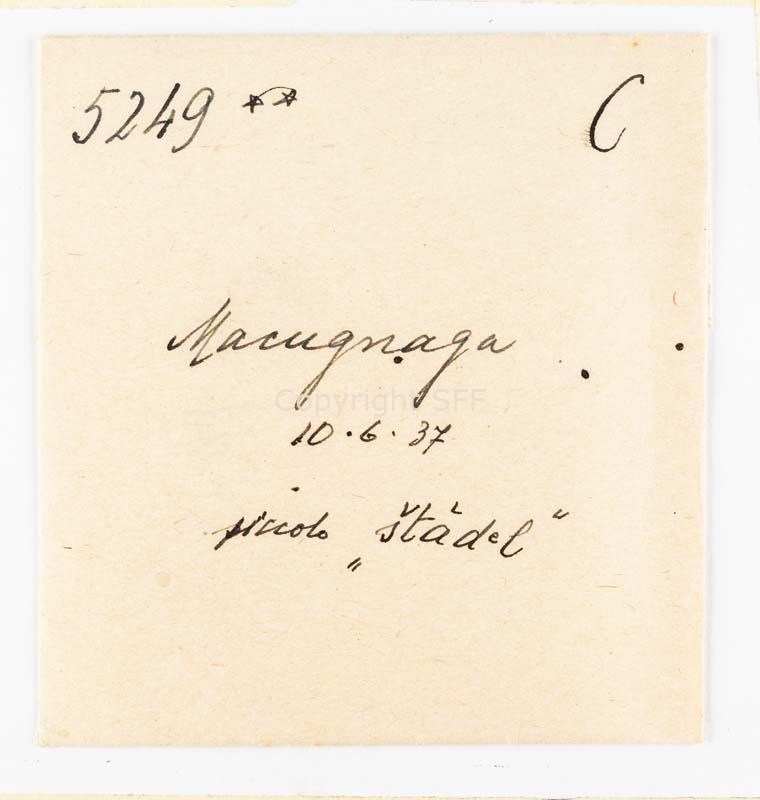 5249 ** C
Macugnaga
Copyright SFF
10.6.37
piccolo „štàdel“